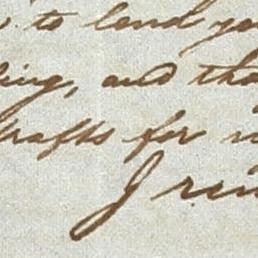 to lend yo
ing, and tha
rafts for
I rem